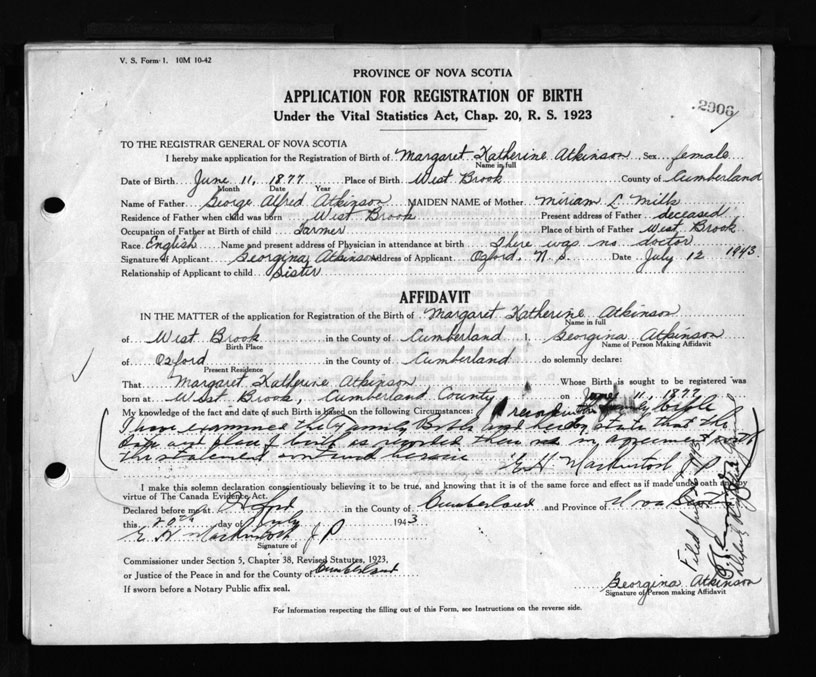 V. S. Form 1. 10M 10-42
PROVINCE OF NOVA SCOTIA
APPLICATION FOR REGISTRATION OF BIRTH
2906
Under the Vital Statistics Act, Chap. 20, R. S. 1923
TO THE REGISTRAR GENERAL OF NOVA SCOTIA
I hereby make application for the Registration of Birth of Margaret Katherine Atkinson Sex female
Name in full
Date of Birth June 11, 1877 Place of Birth West Brook County of Cumberland
Month Date Year
Name of Father George Alfred Atkinson MAIDEN NAME of Mother Miriam L. Mills
Residence of Father when child was born West Brook Present address of Father deceased
Occupation of Father at Birth of child Farmer Place of birth of Father West Brook
Race English Name and present address of Physician in attendance at birth There was no doctor
Signature of Applicant Georgina Atkinson Address of Applicant Oxford, N. S. Date July 12 1943.
Relationship of Applicant to child Sister
AFFIDAVIT
IN THE MATTER of the application for Registration of the Birth of Margaret Katherine Atkinson
Name in full
of West Brook in the County of Cumberland I, Georgina Atkinson
Birth Place Name of Person Making Affidavit
of Oxford in the County of Cumberland do solemnly declare:
Present Residence
That Margaret Katherine Atkinson Whose Birth is sought to be registered was
born at West Brook, Cumberland County on June 11, 1877
My knowledge of the fact and date of such Birth is based on the following Circumstances: family bible
I have examined the Family Bible and hereby state that the
date and place of birth as recorded there in agreement with
the statement contained herein E. H. Mackintosh J P
I make this solemn declaration conscientiously believing it to be true, and knowing that it is of the same force and effect as if made under oath and by
virtue of The Canada Evidence Act.
Declared before me at Oxford in the County of Cumberland and Province of Nova Scotia
this 20th day of July 1943
E H Mackintosh J P
Signature of
Commissioner under Section 5, Chapter 38, Revised Statutes, 1923,
or Justice of the Peace in and for the County of Cumberland
If sworn before a Notary Public affix seal.
Georgina Atkinson
Signature of Person making Affidavit
For Information respecting the filling out of this Form, see Instructions on the reverse side.
Filed July